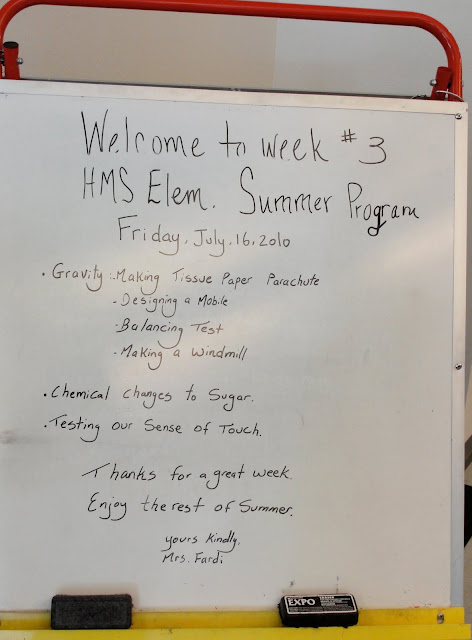 Welcome to week #3
HMS Elem. Summer Program
Friday, July, 16, 2010
. Gravity: - Making Tissue Paper Parachute
- Designing a Mobile
- Balancing Test
- Making a Windmill
. Chemical Changes to Sugar.
. Testing our Sense of Touch.
Thanks for a great week.
Enjoy the rest of Summer.
yours Kindly,
Mrs. Fardi
EXPO